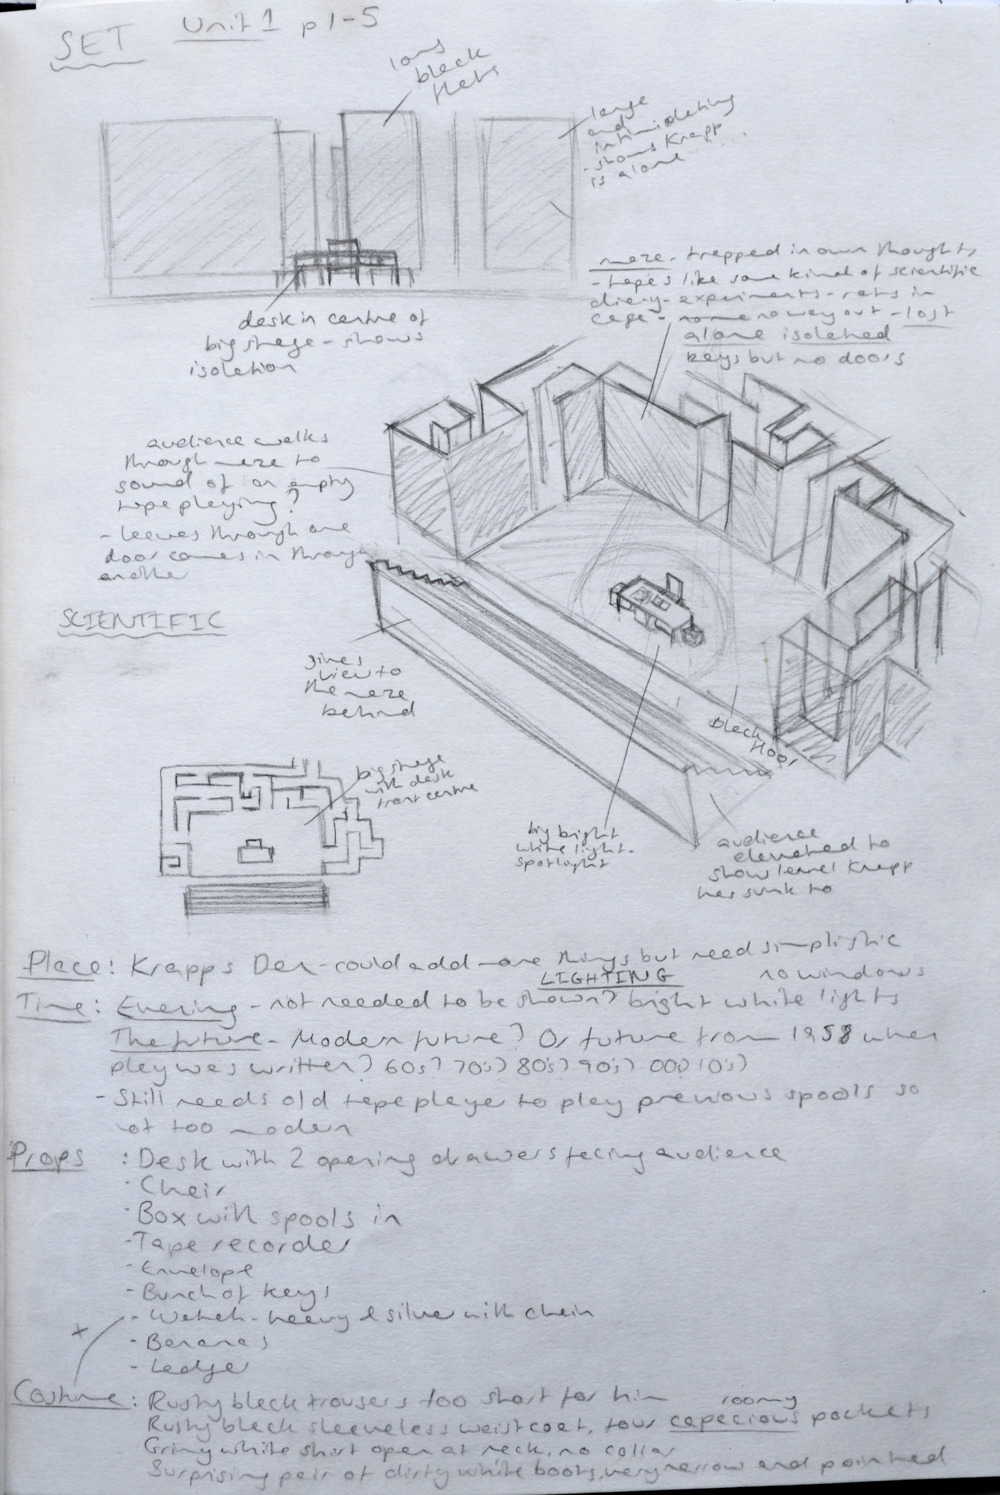 SET Unit 1 p1-5
long
black
flats
large
and
intimidating
- shows Krapp
is alone
desk in centre of
big stage - shows
isolation
maze - trapped in own thoughts
- tapes like some kind of scientific
diary - experiments - rats in
cage - no way out - lost
alone isolated
keys but no doors
audience walks
through maze to
sound of an empty
tape playing?
- leaves through one
door comes in through
another
SCIENTIFIC
gives
view to
the maze
behind
black
floor
big stage
with desk
front centre
big bright
white light -
spotlight
audience
elevated to
show level Krapp
has sunk to
Place: Krapps Den - could add more things but need simplistic
LIGHTING no windows
Time: Evening - not needed to be shown? bright white lights
The future - Modern future? Or future from 1958 when
play was written? 60s? 70s? 80s? 90s? 00s? 10s?
- Still needs old tape player to play previous spools so
not too modern
Props : Desk with 2 opening drawers facing audience
- Chair
- Box with spools in
- Tape recorder
- Envelope
- Bunch of keys
+ - Watch - heavy & silver with chain
- Bananas
- Ledger
Costume: Rusty black trousers too short for him roomy
Rusty black sleeveless waistcoat, four capacious pockets
Grimy white shirt open at neck, no collar
Surprising pair of dirty white boots, very narrow and pointed